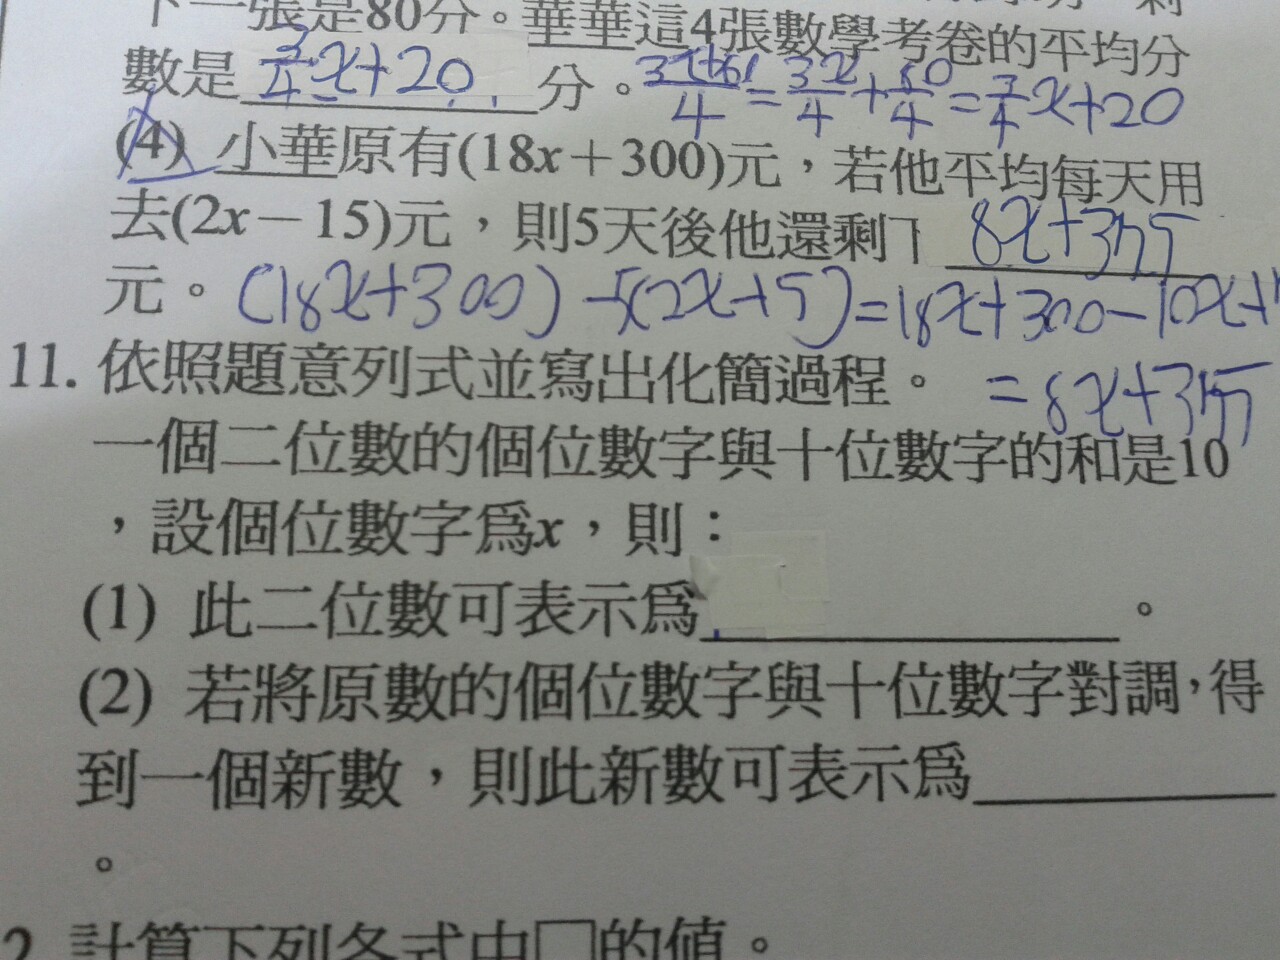 下一張是80分。華華這4張數學考卷的平均分
數是 3/4x+20 分。 = 3x/4 + 80/4 = 3/4x+20
(4) 小華原有(18x+300)元，若他平均每天用
去(2x-15)元，則5天後他還剩下 8x+375
元。 (18x+300)-5(2x-15)=18x+300-10x+
11. 依照題意列式並寫出化簡過程。 =8x+375
一個二位數的個位數字與十位數字的和是10
，設個位數字爲x，則：
(1) 此二位數可表示爲 。
(2) 若將原數的個位數字與十位數字對調，得
到一個新數，則此新數可表示爲
。
2. 計算下列各式中□的值。